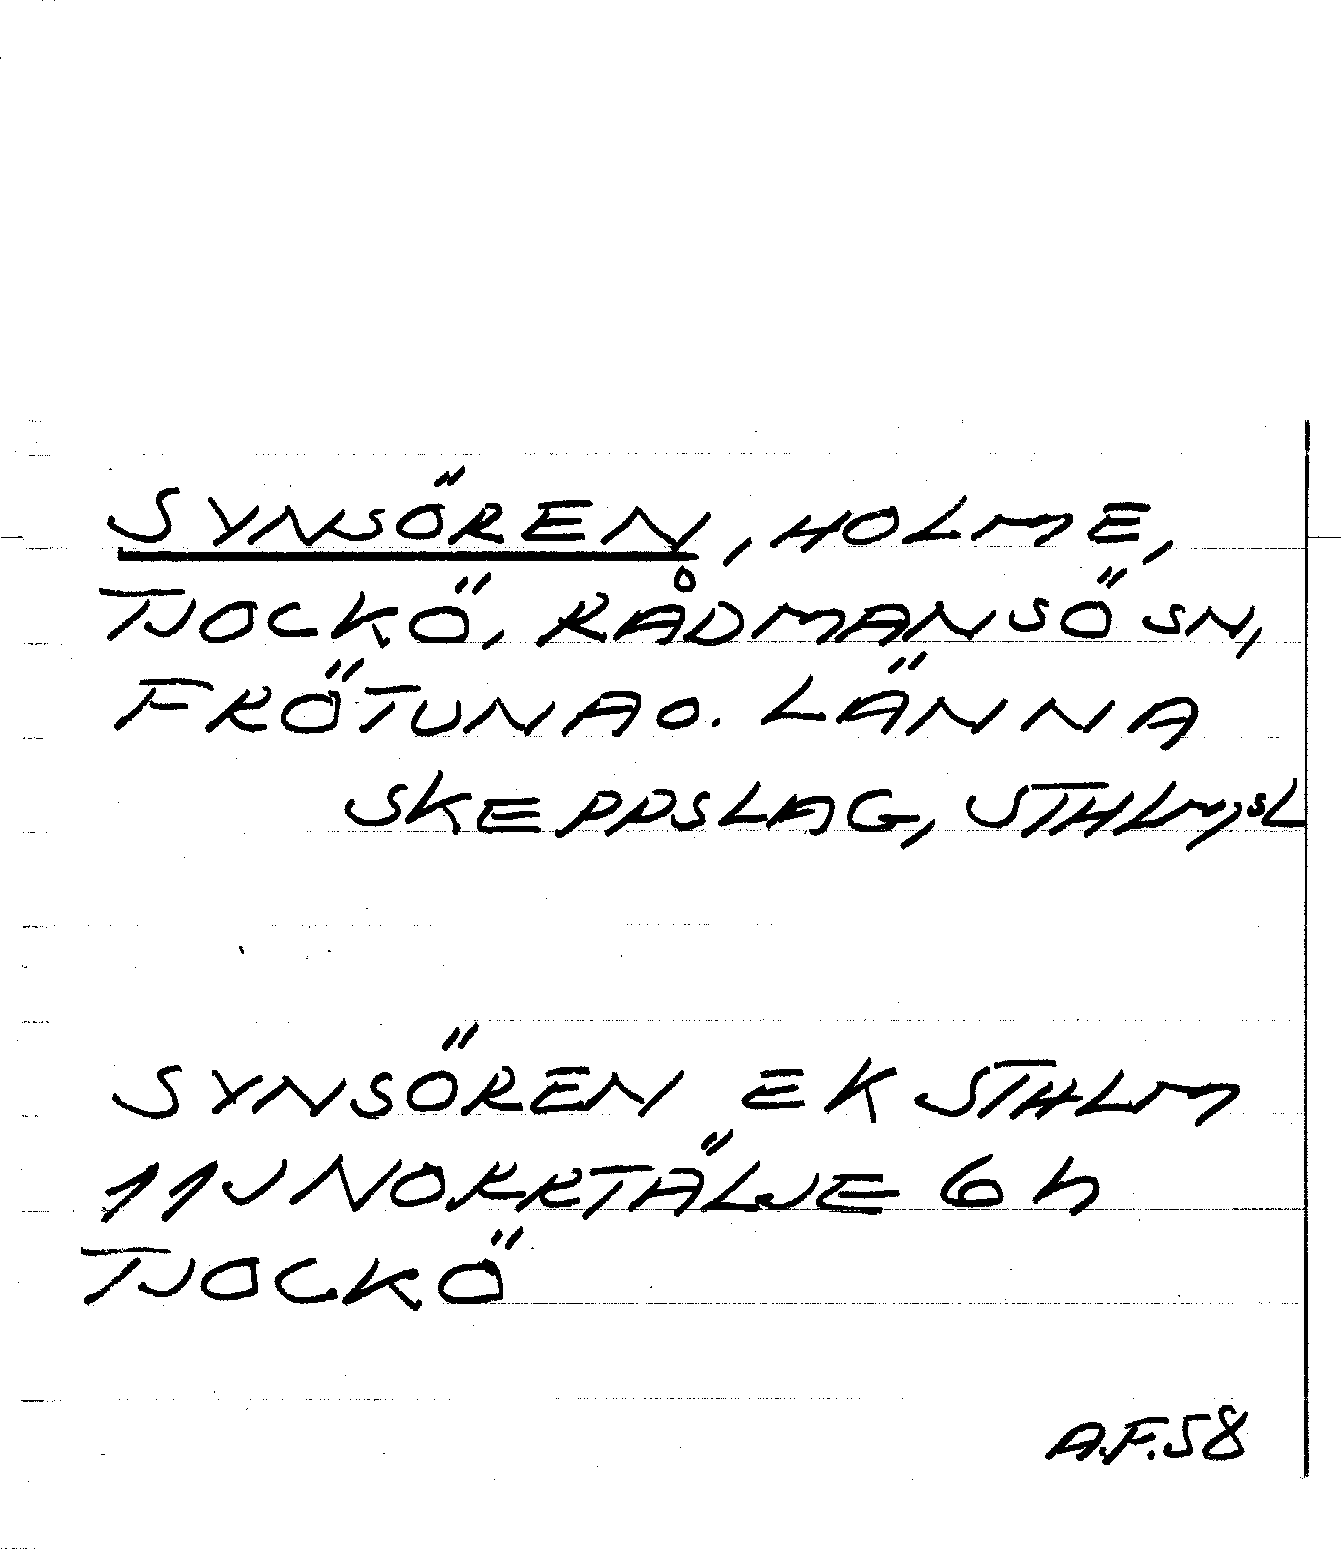 SYNSÖREN, HOLME,
TJOCKÖ, RÅDMANSÖ SN,
FRÖTUNA O. LÄNNA
SKEPPSLAG, STHLM,SL
SYNSÖREN EK STHLM
11J NORRTÄLJE 6h
TJOCKÖ
A.F.58